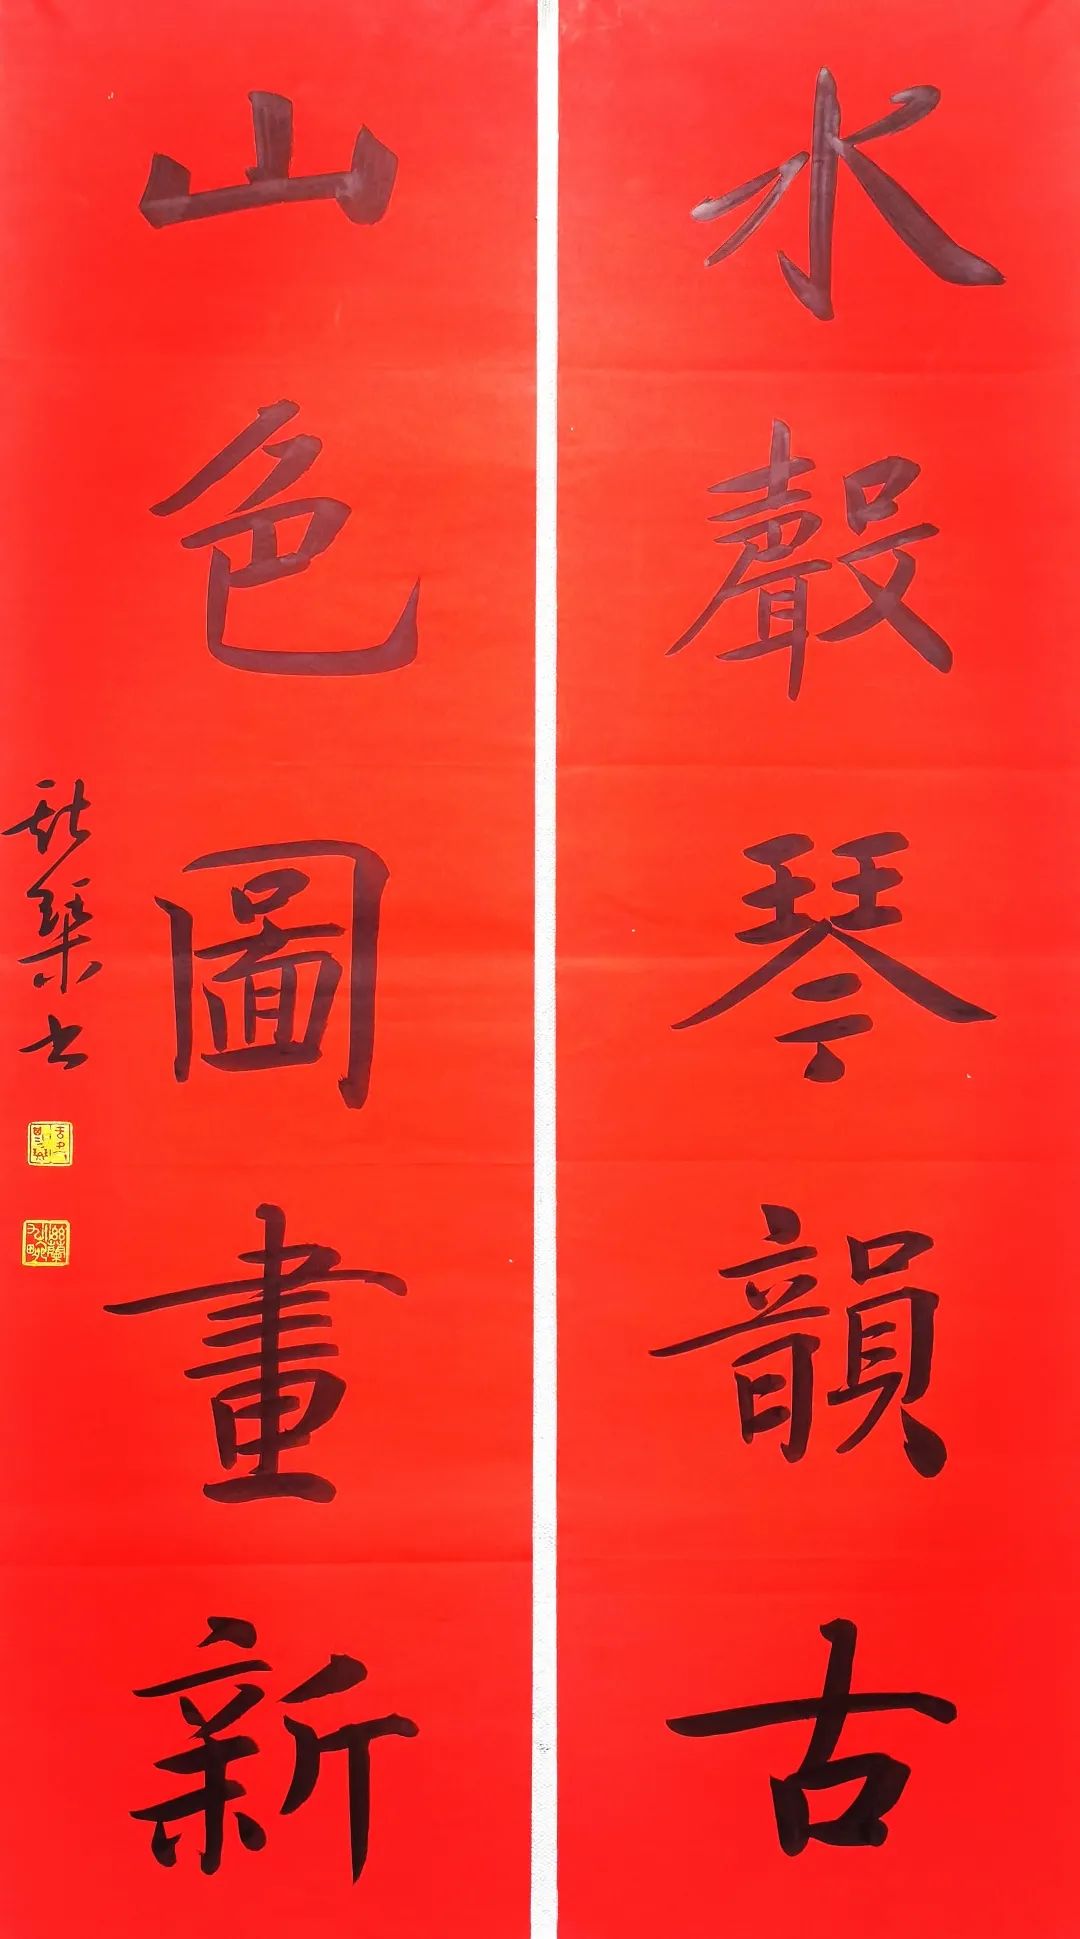 水聲琴韻古
山色圖畫新